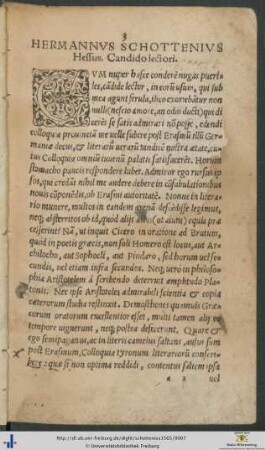 3
HERMANNVS SCHOTTENIVS
Hessus Candido lectori.
CVM nuper hasce conderē nugas puerīles,
cādide lector, in eorū usum, qui sub
mea agunt ferula, ītro exorebātur non
nulli (nescio amore, an odio ducti) qui di
cerēt se satis admirari nō posse, edendi
colloquia prouinciā me uelle subire post Erasmū illū Ger
maniæ decus, & literarū uerarū tandiū nostra ætate, cu
ius Colloquia omniū iuuenū palatis satisfacerēt. Horum
stomacho paucis respondere lubet. Admiror ego rursus ip
sos, qui credāt nihil me audere debere in cōfabulationibus
nouis cōponēdis, ob Erasmi autoritatē. Nonne in literario
munere, multos in eandem arenā descēdisse legimus,
neq; absterritos ob id, quod alijs
ceperint? Nā, ut inquit Cicero in oratione ad Brutum,
quid in poetis græcis, non soli Homero est locus, aut Ar
chilocho, aut Sophocli, aut Pindaro, sed horum uel se
cundis, uel etiam infra secundos. Neq; uero in philoso
phia Aristotelem à scribendo deterruit amplitudo Pla
tonis. Nec ipse Aristoteles admirabili scientia & copia
cæterorum studia restinxit. Demosthenes quamuis Græ
corum oratorum excellentior esset, multi tamen alij eo
tempore uiguerunt, neq; postea defecerunt. Quare &
ego semipaganus, ac in literis camelus saltans, ausus sum
post Erasmum, Colloquia tyronum literariorū conscri
bere: quæ si non optima reddidi, contentus saltem ipsa
a uel
http://dl.ub.uni-freiburg.de/diglit/schottenius1565/0007
© Universitätsbibliothek Freiburg